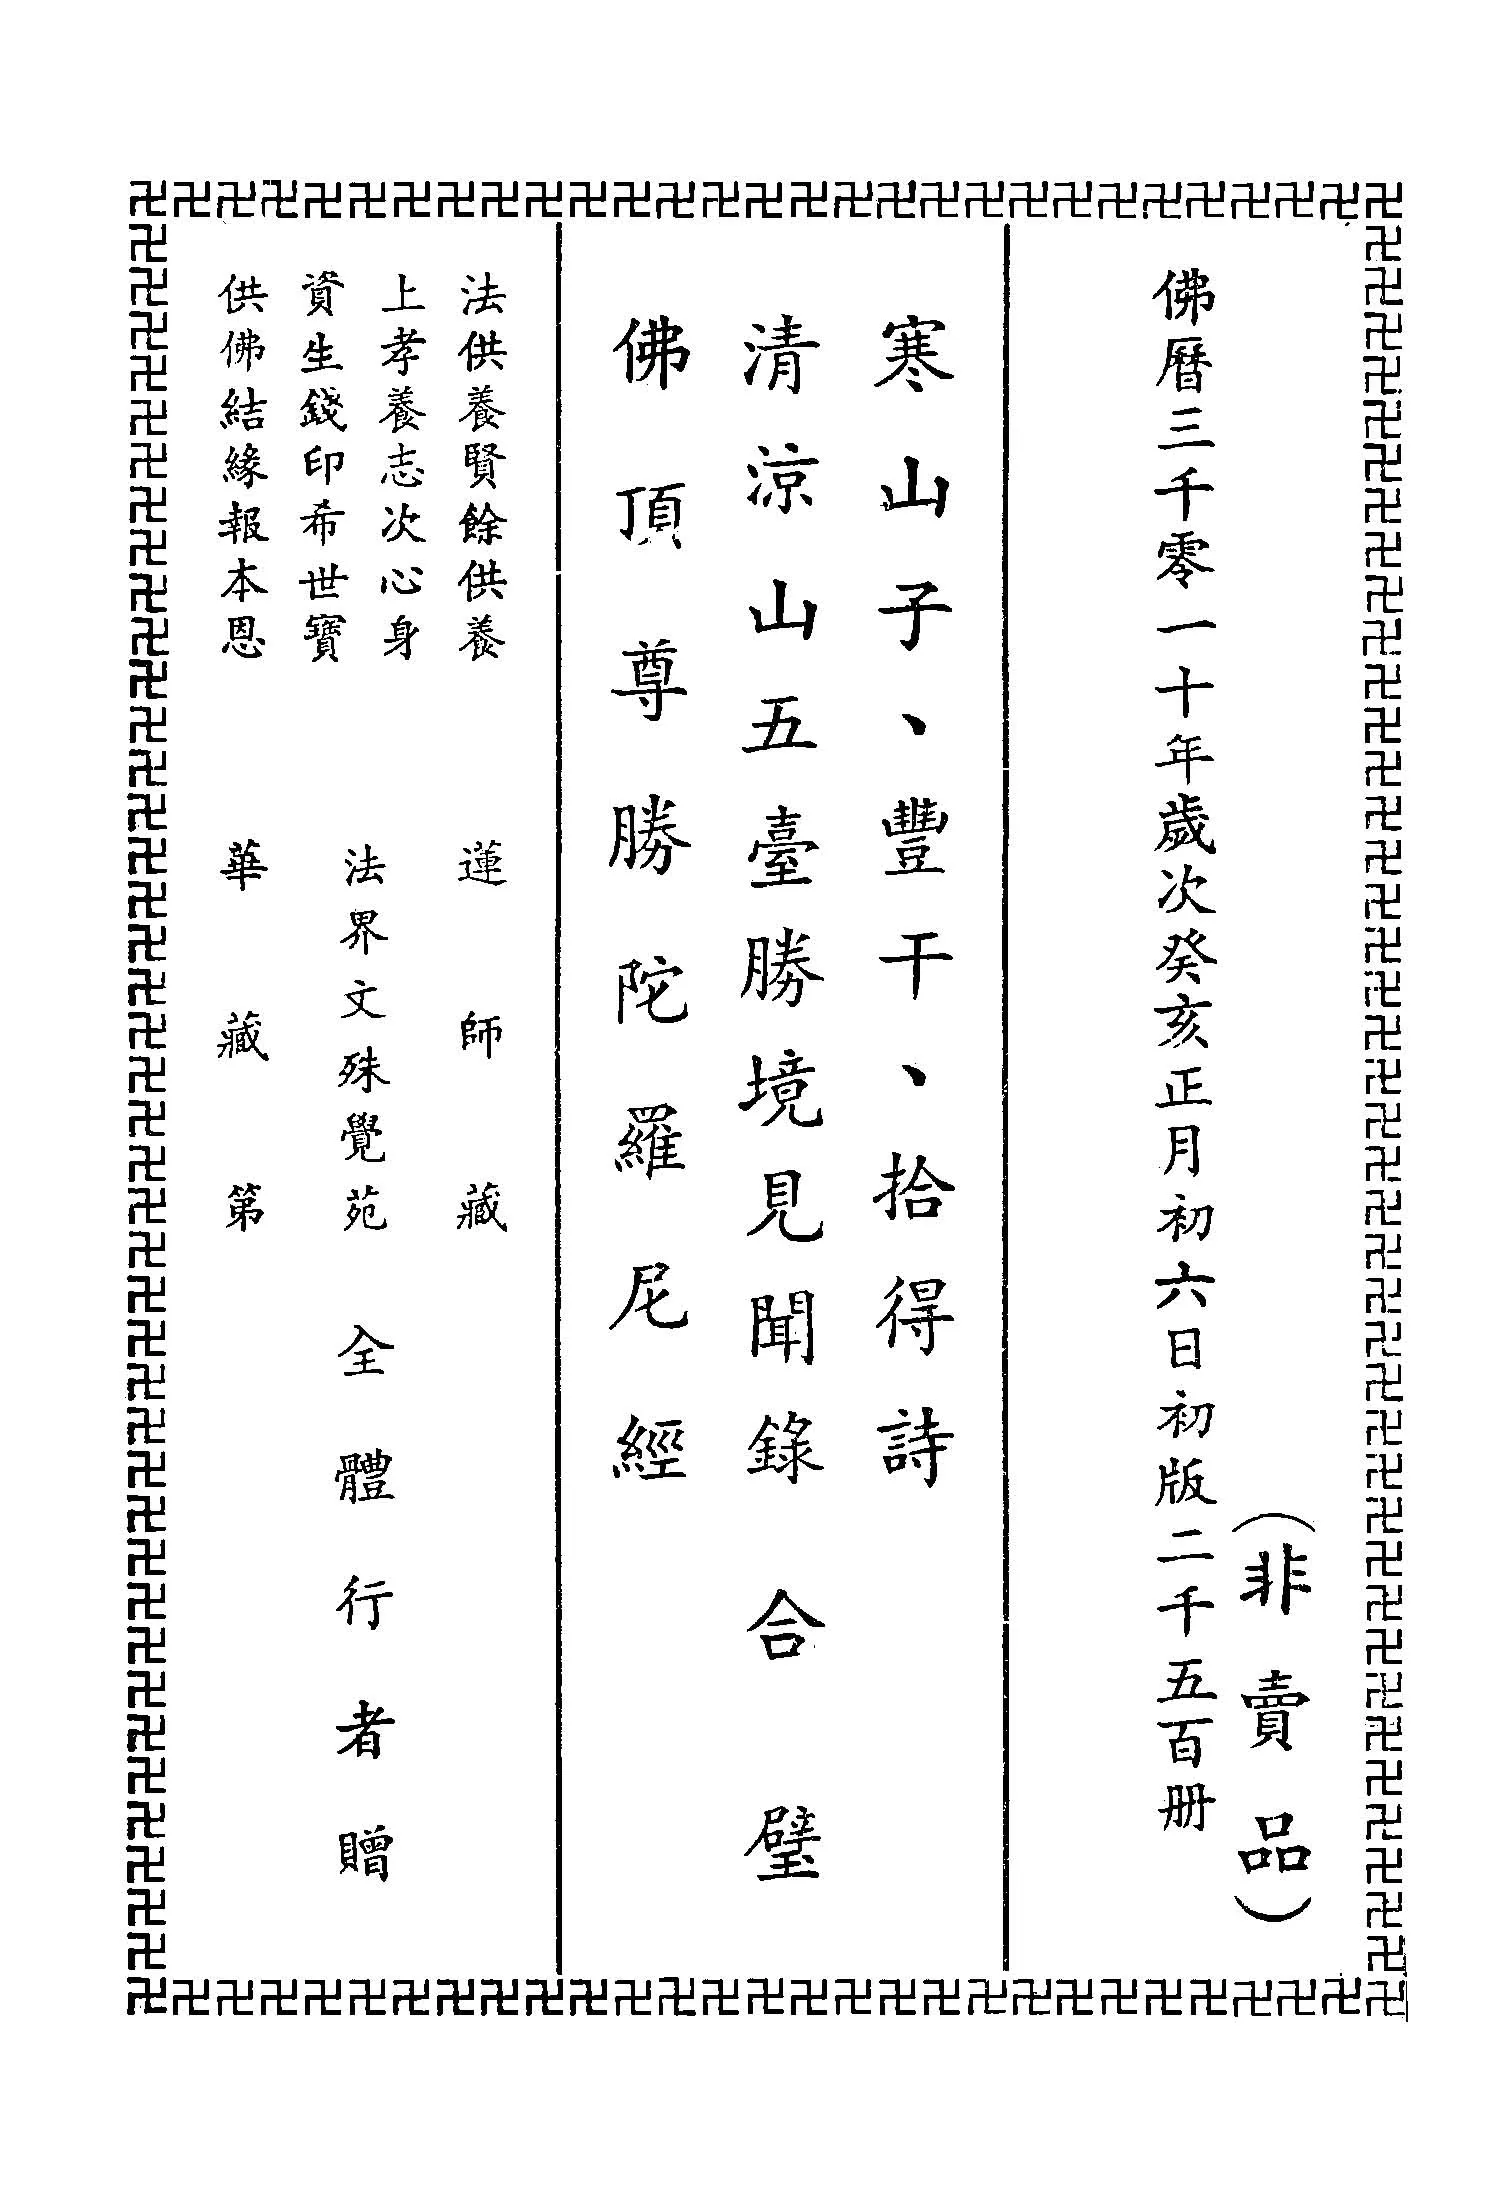 （非賣品）
佛曆三千零一十年歲次癸亥正月初六日初版二千五百册
寒山子、豐干、拾得詩
清涼山五臺勝境見聞錄
佛頂尊勝陀羅尼經
合璧
法供養賢餘供養
上孝養志次心身
資生錢印希世寶
供佛結緣報本恩
蓮師藏
法界文殊覺苑
華藏第
全體行者贈